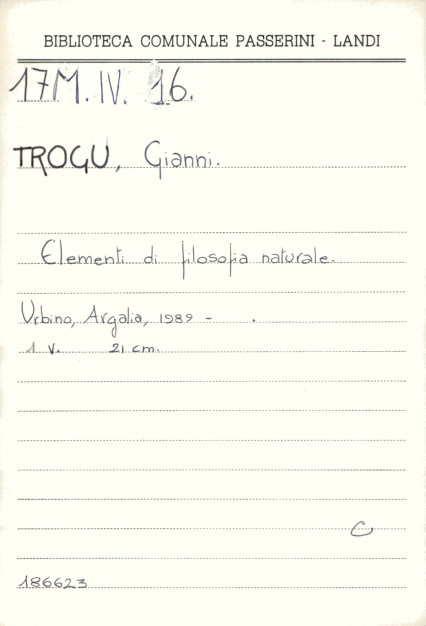 BIBLIOTECA COMUNALE PASSERINI - LANDI
17M. IV. 16.
TROGU, Gianni.
Elementi di filosofia naturale.
Urbino, Argalia, 1989 - .
1 v. 21 cm.
C
186623